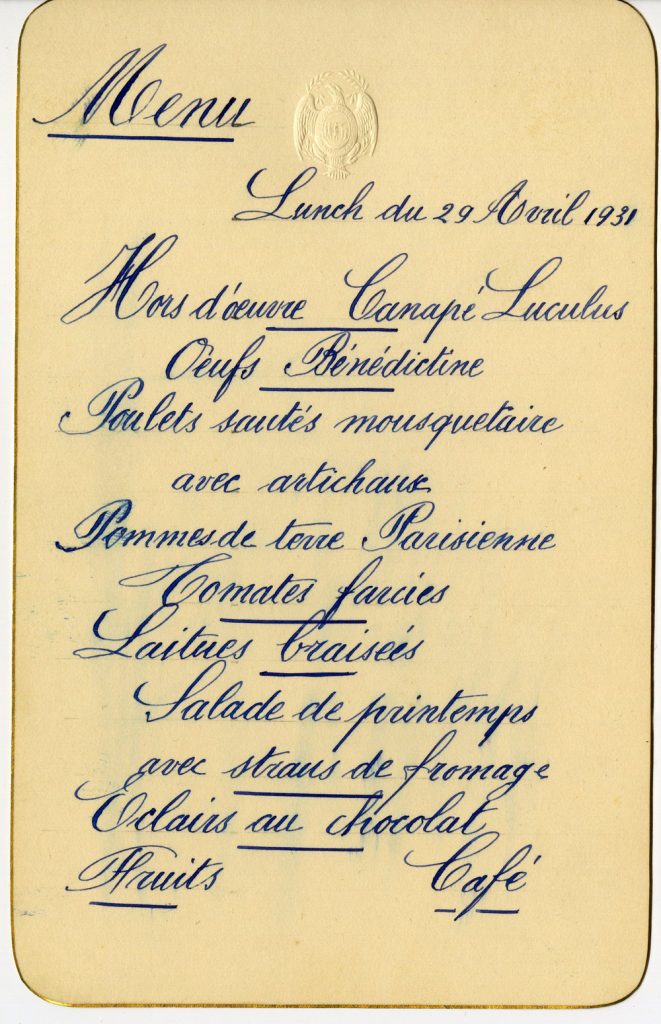 Menu
Lunch du 29 Avril 1931
Hors d'œuvre Canapé Luculus
Oeufs Bénédictine
Poulets sautés mousquetaire
avec artichaux
Pommes de terre Parisienne
Tomates farcies
Laitues braisées
Salade de printemps
avec straus de fromage
Eclairs au chocolat
Fruits Café